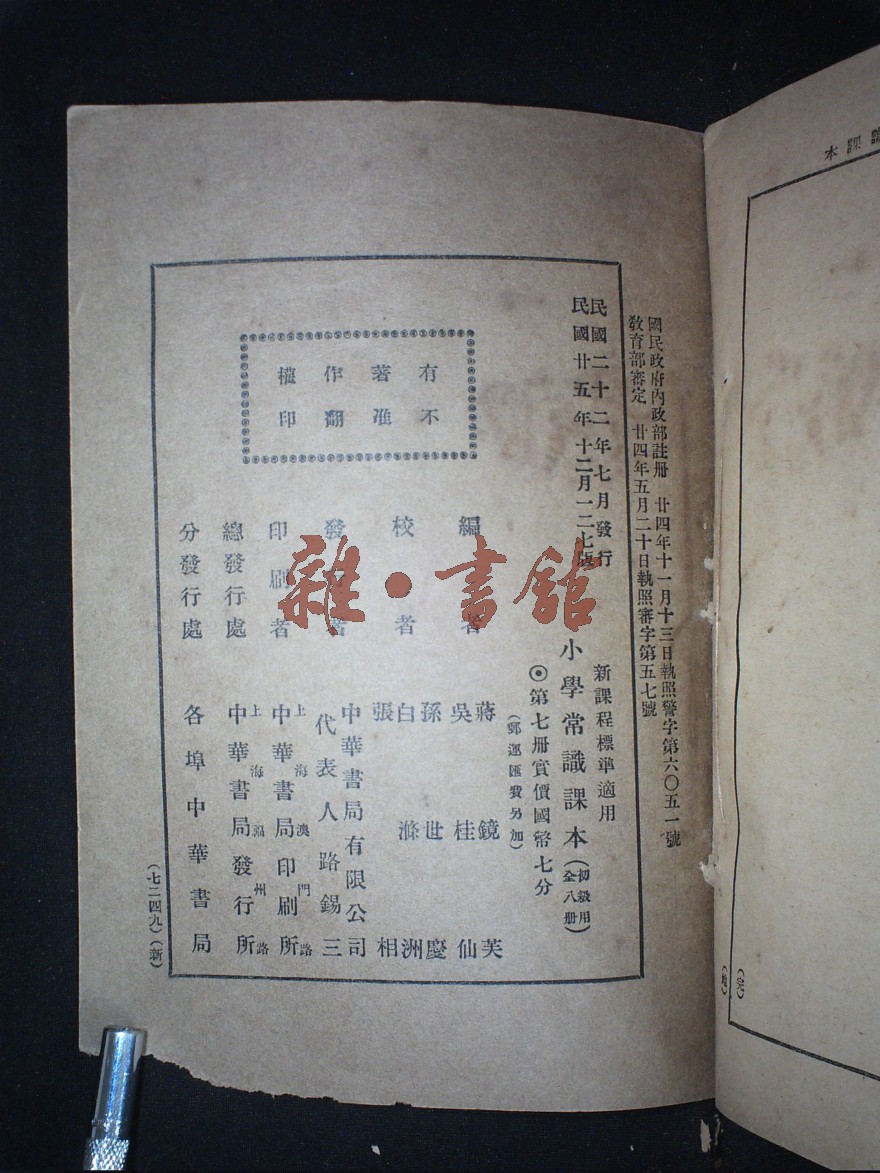 課本
國民政府內政部註冊 廿四年十一月十三日執照警字第六〇五一號
教育部審定 廿四年五月二十日執照審字第五七號
民國二十二年七月發行
民國廿五年十二月一二七版
新課程標準適用
小學常識課本(初級用全八冊)
⊙第七冊實價國幣七分
(郵運匯費另加)
有著作權
不准翻印
編著者 蔣鏡芙
吳桂仙
校者 孫世慶
白滌洲
張相
發行者 中華書局有限公司
代表人路錫三
印刷者 上海澳門路
中華書局印刷所
總發行處 上海福州路
中華書局發行所
分發行處 各埠中華書局
(七二四九)(新)
雜·書館
(完)